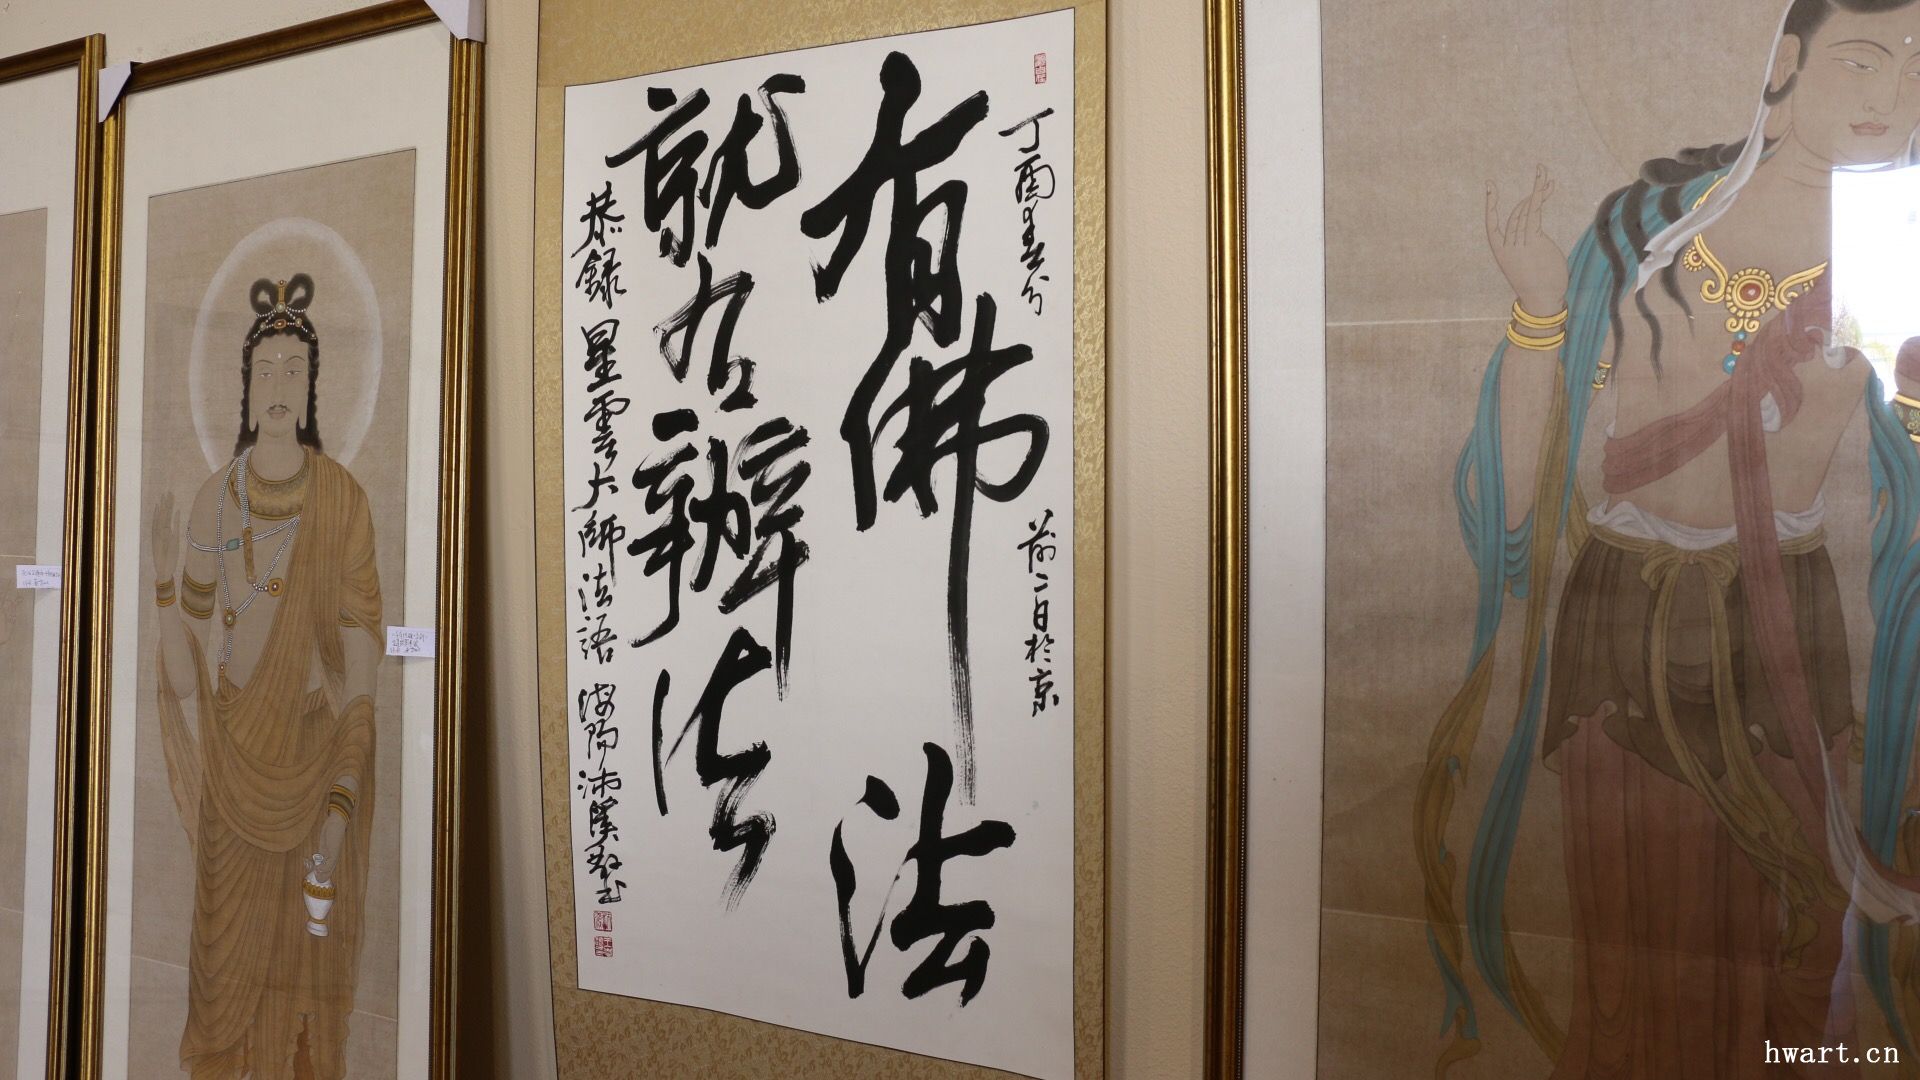 丁酉年春分
前二日於京
有佛法
就有辦法
恭録星雲大師法語
海陽沛溪敬书
hwart.cn